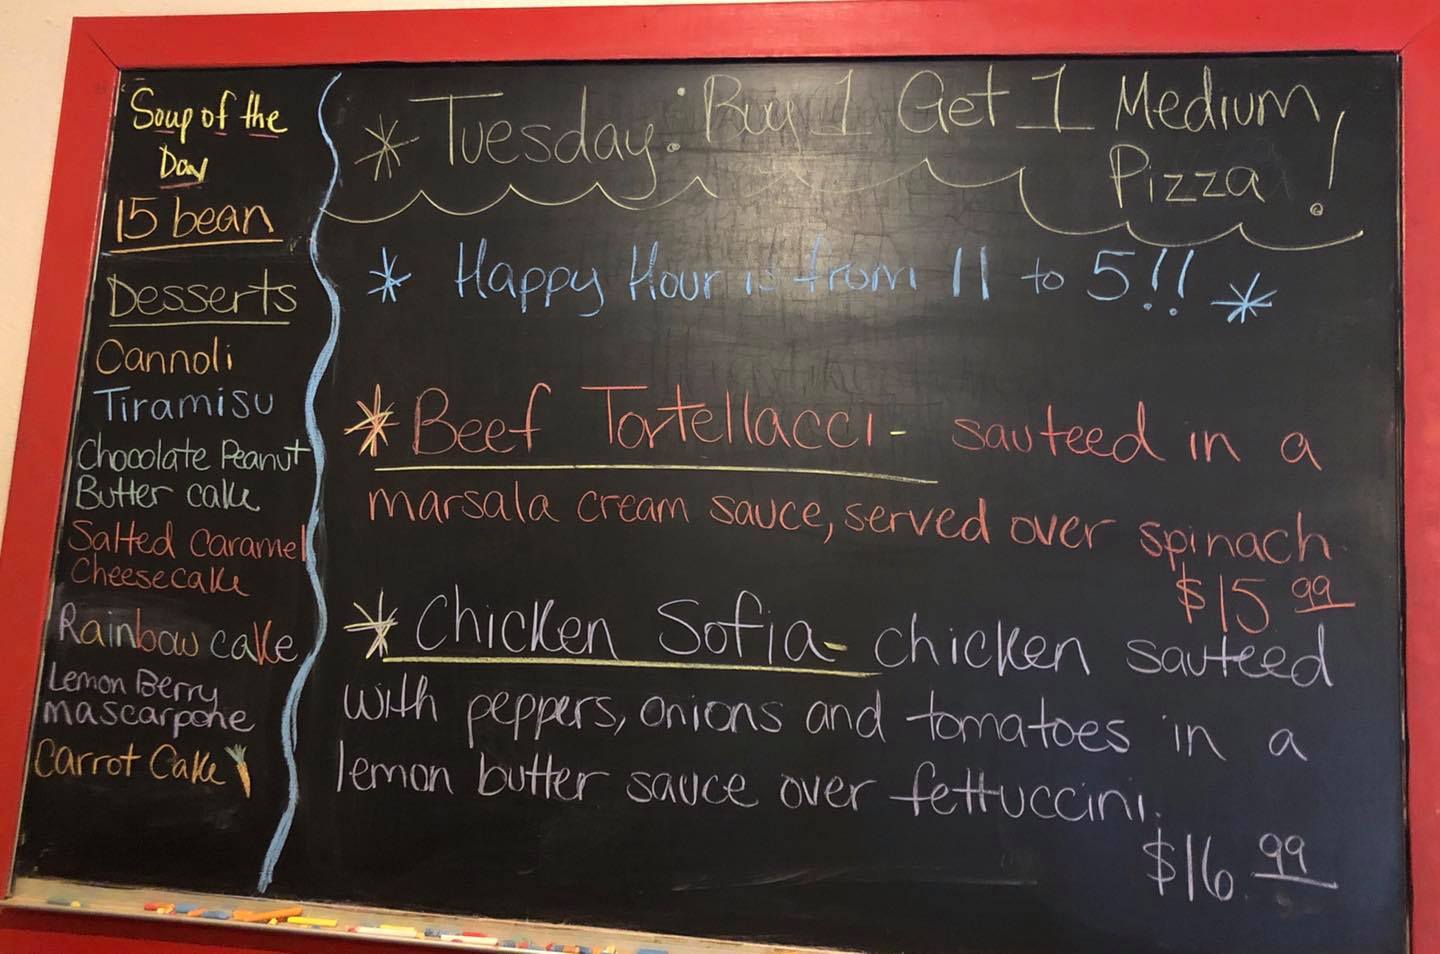 Soup of the
Day
15 bean
Desserts
Cannoli
Tiramisu
Chocolate Peanut
Butter cake
Salted Caramel
Cheesecake
Rainbow cake
Lemon Berry
mascarpone
Carrot Cake
* Tuesday: Buy 1 Get 1 Medium
Pizza!
* Happy Hour is from 11 to 5!! *
* Beef Tortellacci - sauteed in a
marsala cream sauce, served over spinach
$15.99
* Chicken Sofia - chicken sauteed
with peppers, onions and tomatoes in a
lemon butter sauce over fettuccini.
$16.99